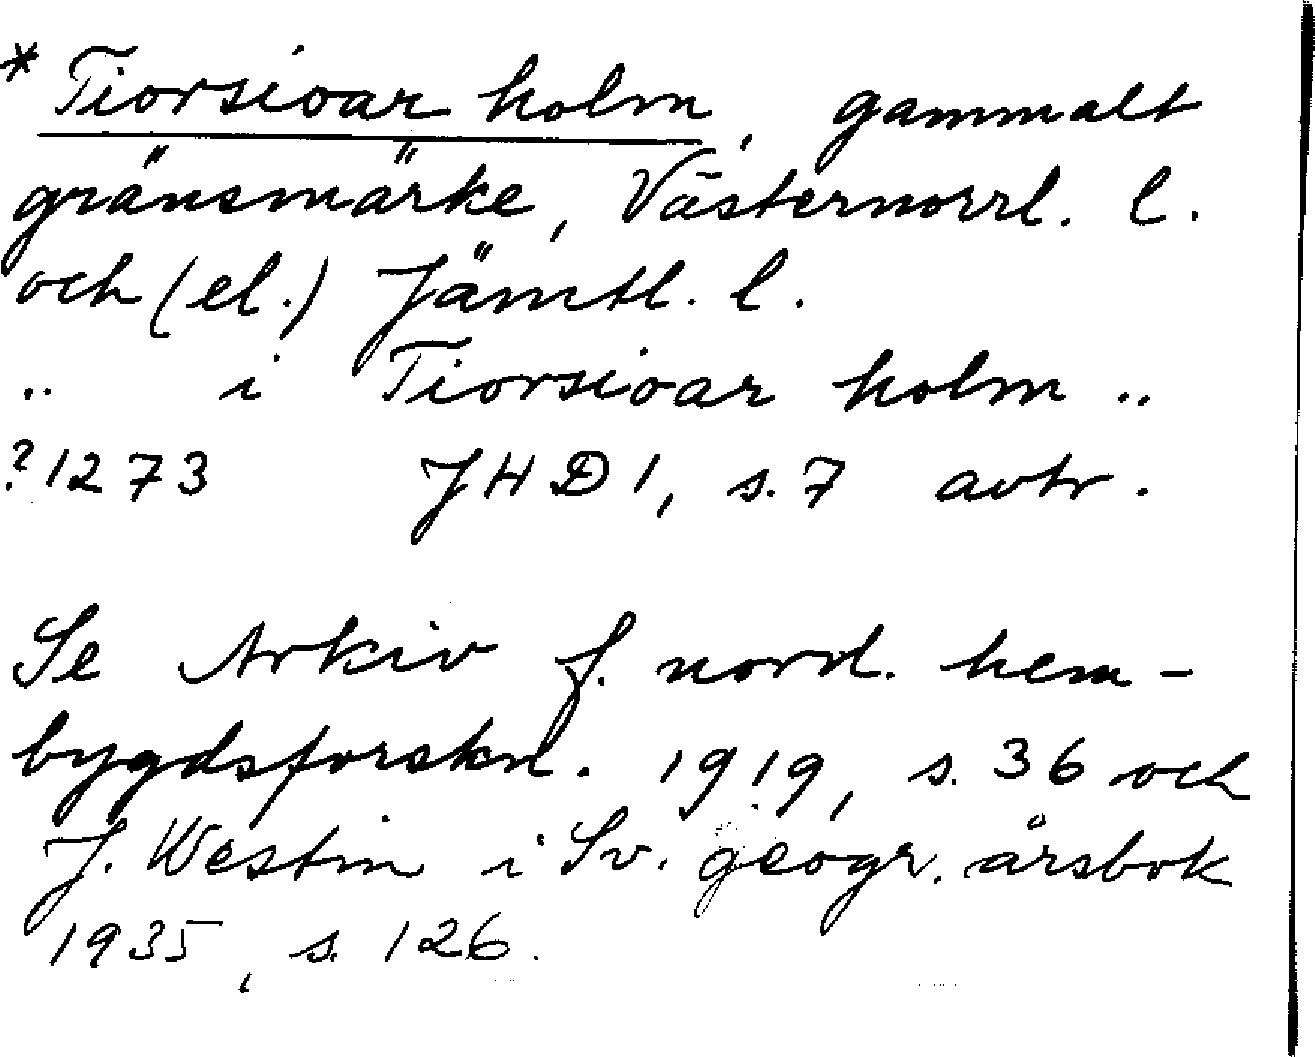 * Tiorsioar holm, gammalt
gränsmärke, Västernorrl. l.
och (el.) Jämtl. l.
.. i Tiorsioar holm ..
?1273 JHD 1, s. 7 avtr.
Se Arkiv f. nord. hem-
bygdsforskn. 1919, s. 36 och
J. Westin i Sv. geogr. årsbok
1935, s. 126.